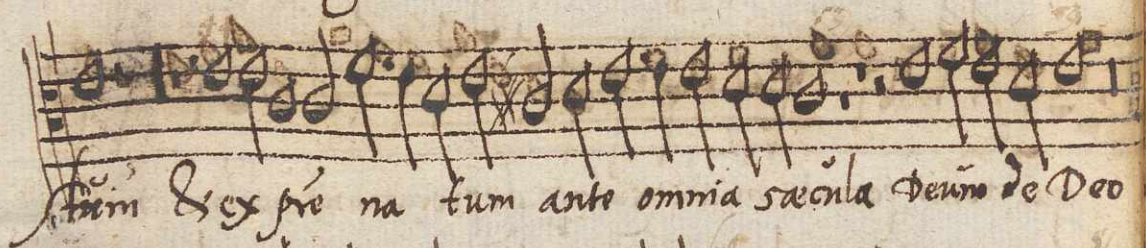 stum & ex pre na tum ante omnia sæcula Deum de Deo